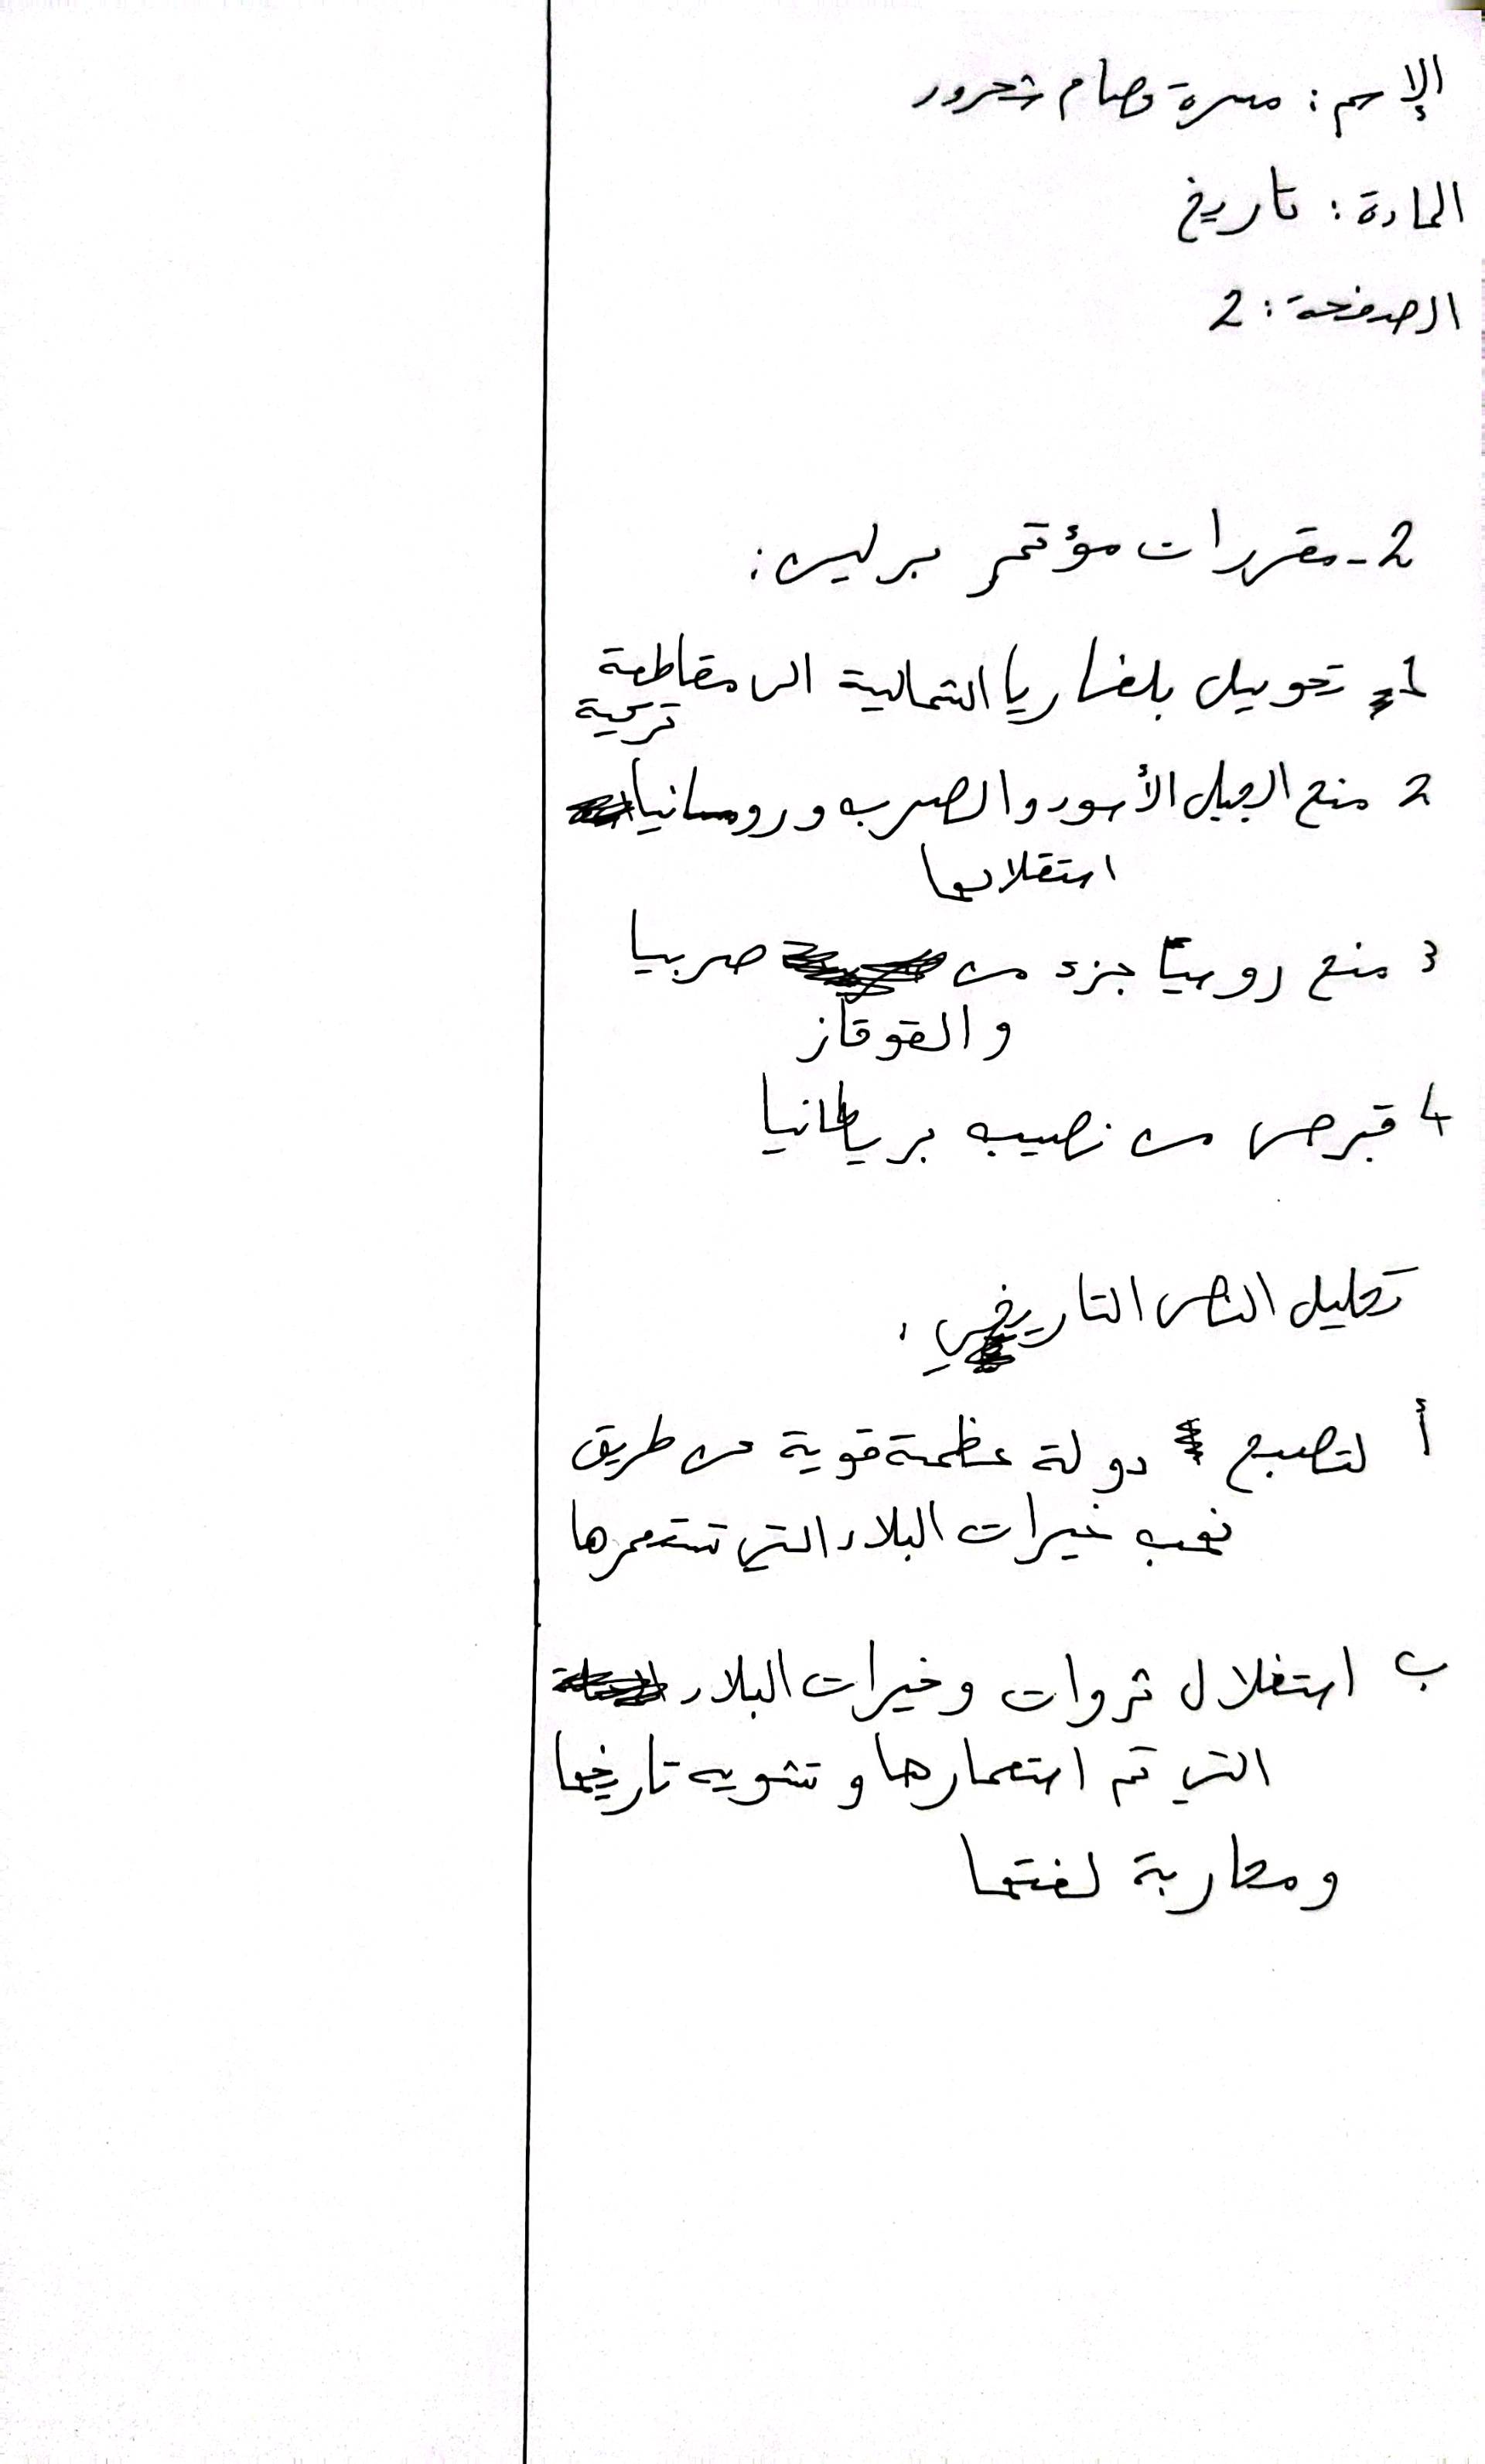 الإسم: ميرة وصام شحرور
المادة: تاريخ
الصفحة: 2
2- مقررات مؤتمر برلين:
1- تحويل بلغاريا الشمالية الى مقاطعة
تركية
2 منح الجبل الأسود والصرب ورومانيا
استقلالها
3 منح روسيا جزء من صربيا
والقوقاز
4 قبرص من نصيب بريطانيا
تحليل النص التاريخي:
أ لتصبح دولة عظمة قوية عن طريق
نهب خيرات البلاد التي تستعمرها
ب استغلال ثروات وخيرات البلاد
التي تم استعمارها وتشويه تاريخها
ومحاربة لغتها